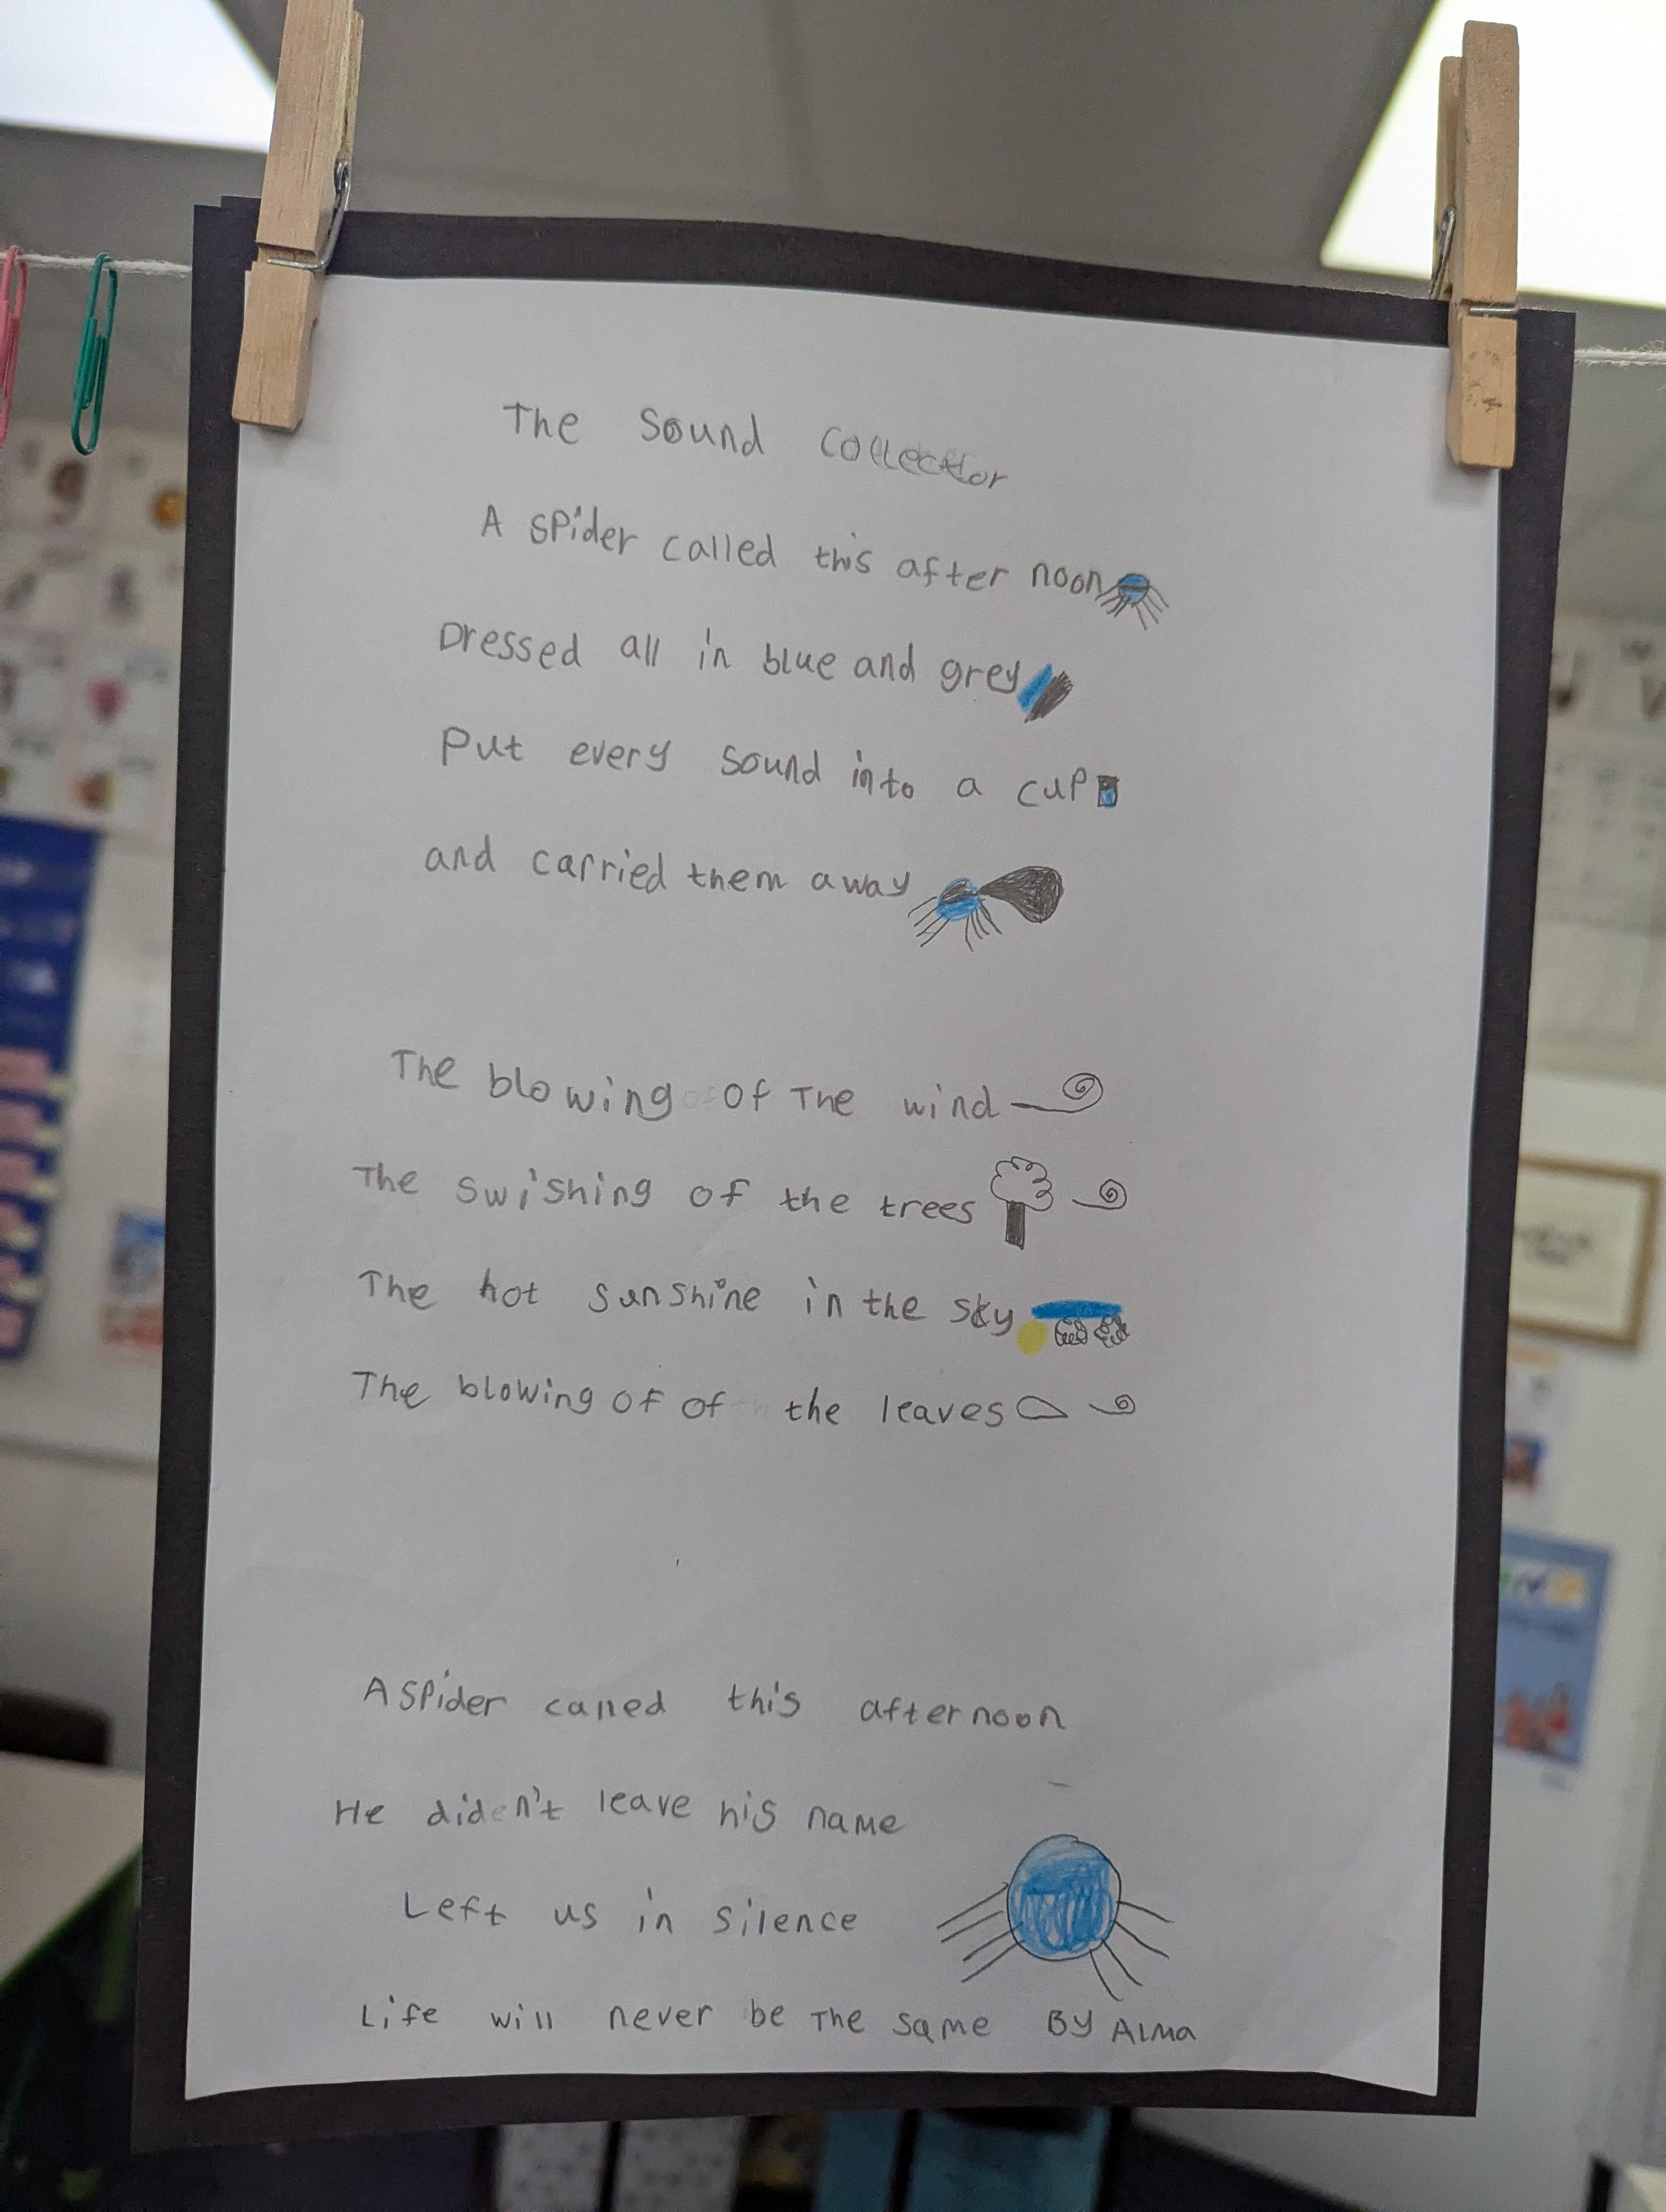 The Sound Collector
A spider called this after noon
Dressed all in blue and grey
Put every sound into a cup
and carried them away
The blowing of The wind
The swishing of the trees
The hot sunshine in the sky
The blowing of of the leaves
A spider called this afternoon
He diden't leave his name
Left us in silence
Life will never be The same BY ALMA